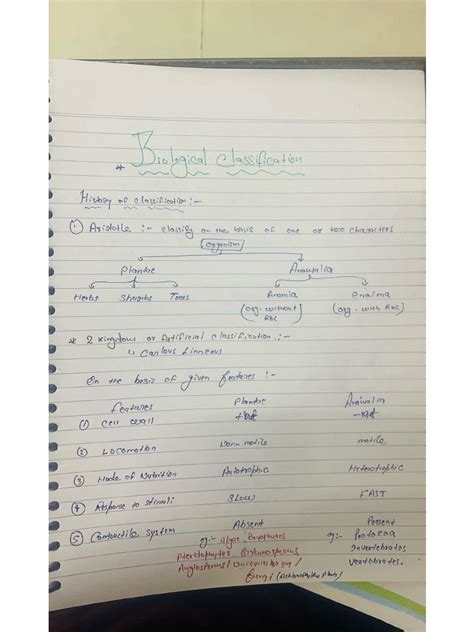 * Biological classification
History of classification :-
① Aristotle :- classify on the basis of one or two characters
organism
Plantae Animalia
Herbs Shrubs Trees Anaima enaima
(org. without RBC) (org. with RBC)
* 2 Kingdom or Artificial classification :-
↳ Carlous Linneous
On the basis of given features :-
features Plantae Animalia
(1) Cell wall +nt -nt
(2) Locomotion Non-motile motile
(3) Mode of Nutrition Autotrophic Heterotrophic
(4) Response to stimuli Slow FAST
(5) Contractile system Absent Present
eg:- Algae, Bryophytes eg:- Protozoa
Pteridophytes, Gymnosperms Invertebrates
Angiosperms / Unicellular / vertebrates.
fungi